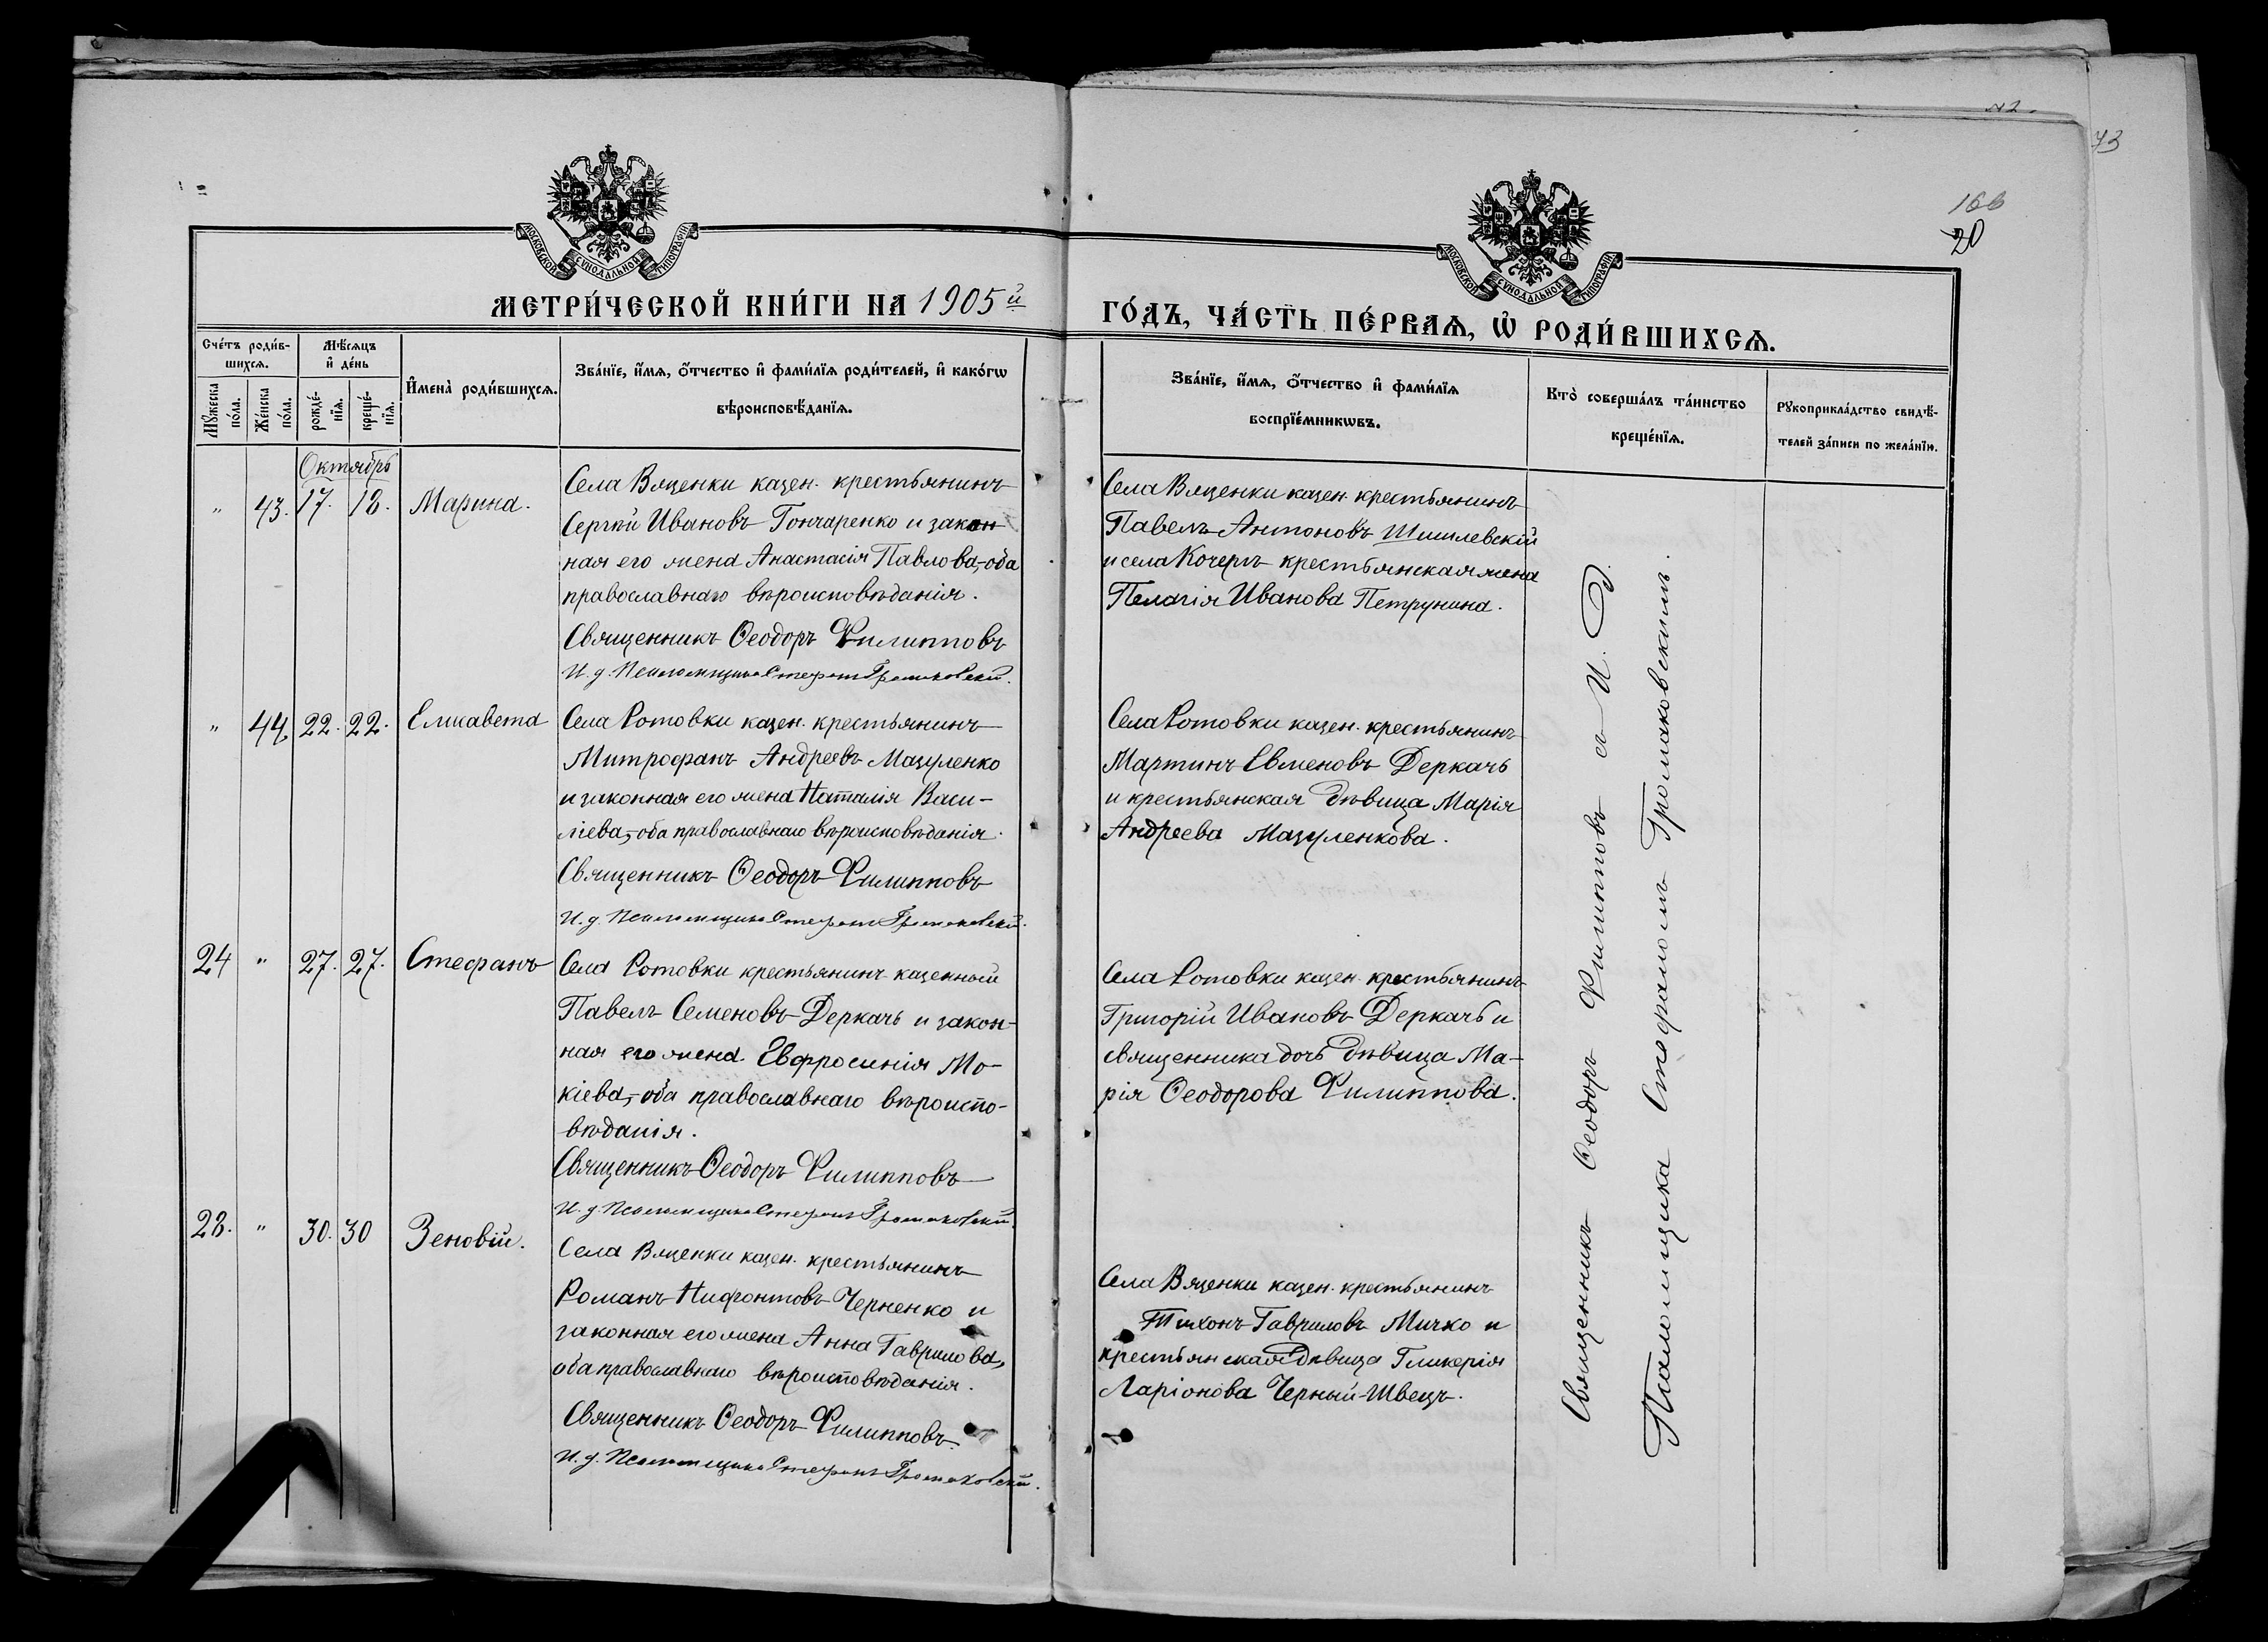 42.
43
166
20
МОСКОВСКОЙ СѴНОДАЛЬНОЙ ТИПОГРАФІИ
МОСКОВСКОЙ СѴНОДАЛЬНОЙ ТИПОГРАФІИ
МЕТРИ́ЧЕСКОЙ КНИ́ГИ НА 1905й
ГО́ДЪ, ЧА́СТЬ ПЕ́РВАѦ, Ѡ҆ РОДИ́ВШИХСѦ.
Сче́тъ роди́в-
шихсѧ.
Мꙋжеска по́ла.
Же́нска по́ла.
Мѣ́сѧцъ
и҆ де́нь
рожде́-
нїѧ.
креще́-
нїѧ.
И҆мена̀ роди́вшихсѧ.
Зва́нїе, и҆́мѧ, ѻ҆́тчество и҆ фами́лїѧ роди́телей, и҆ како́гѡ
вѣроисповѣ́данїѧ.
Зва́нїе, и҆́мѧ, ѻ҆́тчество и҆ фами́лїѧ
воспрїе́мникѡвъ.
Кто̀ соверша́лъ та́инство
креще́нїѧ.
Рꙋкоприкла́дство свидѣ́-
телей за́писи по жела́нїю.
Октябрь
" 43. 17. 18. Марина.
Села Вяценки казен. крестьянинъ
Сергій Ивановъ Гончаренко и закон
ная его жена Анастасія Павлова,-оба
православнаго вѣроисповѣданія.
Священникъ Ѳеодоръ Филипповъ
И. д. Псаломщика Стефанъ Громаковскій.
Села Вяценки казен. крестьянинъ
Павелъ Антоновъ Шишлевскій
и села Кочеръ крестьянская жена
Пелагія Иванова Петрунина.
" 44. 22. 22. Елисавета
Села Ротовки казен. крестьянинъ
Митрофанъ Андреевъ Мазуленко
и законная его жена Наталія Васи-
ліева,-оба православнаго вѣроисповѣданія.
Священникъ Ѳеодоръ Филипповъ
И. д. Псаломщика Стефанъ Громаковскій.
Села Ротовки казен. крестьянинъ
Мартинъ Евменовъ Деркачь
и крестьянская дѣвица Марія
Андреева Мазуленкова.
24 " 27. 27. Стефанъ
Села Ротовки крестьянинъ казенный
Павелъ Семеновъ Деркачь и закон-
ная его жена Евфросинія Мо-
кіева,-оба православнаго вѣроиспо-
вѣданія.
Священникъ Ѳеодоръ Филипповъ
И. д. Псаломщика Стефанъ Громаковскій.
Села Ротовки казен. крестьянинъ
Григорій Ивановъ Деркачь и
священника дочь дѣвица Ма-
рія Ѳеодорова Филиппова.
28. " 30. 30 Зеновій.
Села Вяценки казен. крестьянинъ
Романъ Нифонтовъ Черненко и
законная его жена Анна Гаврилова,
оба православнаго вѣроисповѣданія.
Священникъ Ѳеодоръ Филипповъ.
И. д. Псаломщика Стефанъ Громаковскій.
Села Вяценки казен. крестьянинъ
Тихонъ Гавриловъ Мичко и
крестьянская дѣвица Гликерія
Ларіонова Черный-Швецъ.
Священникъ Ѳеодоръ Филипповъ съ И. д.
Псаломщика Стефаномъ Громаковскимъ.